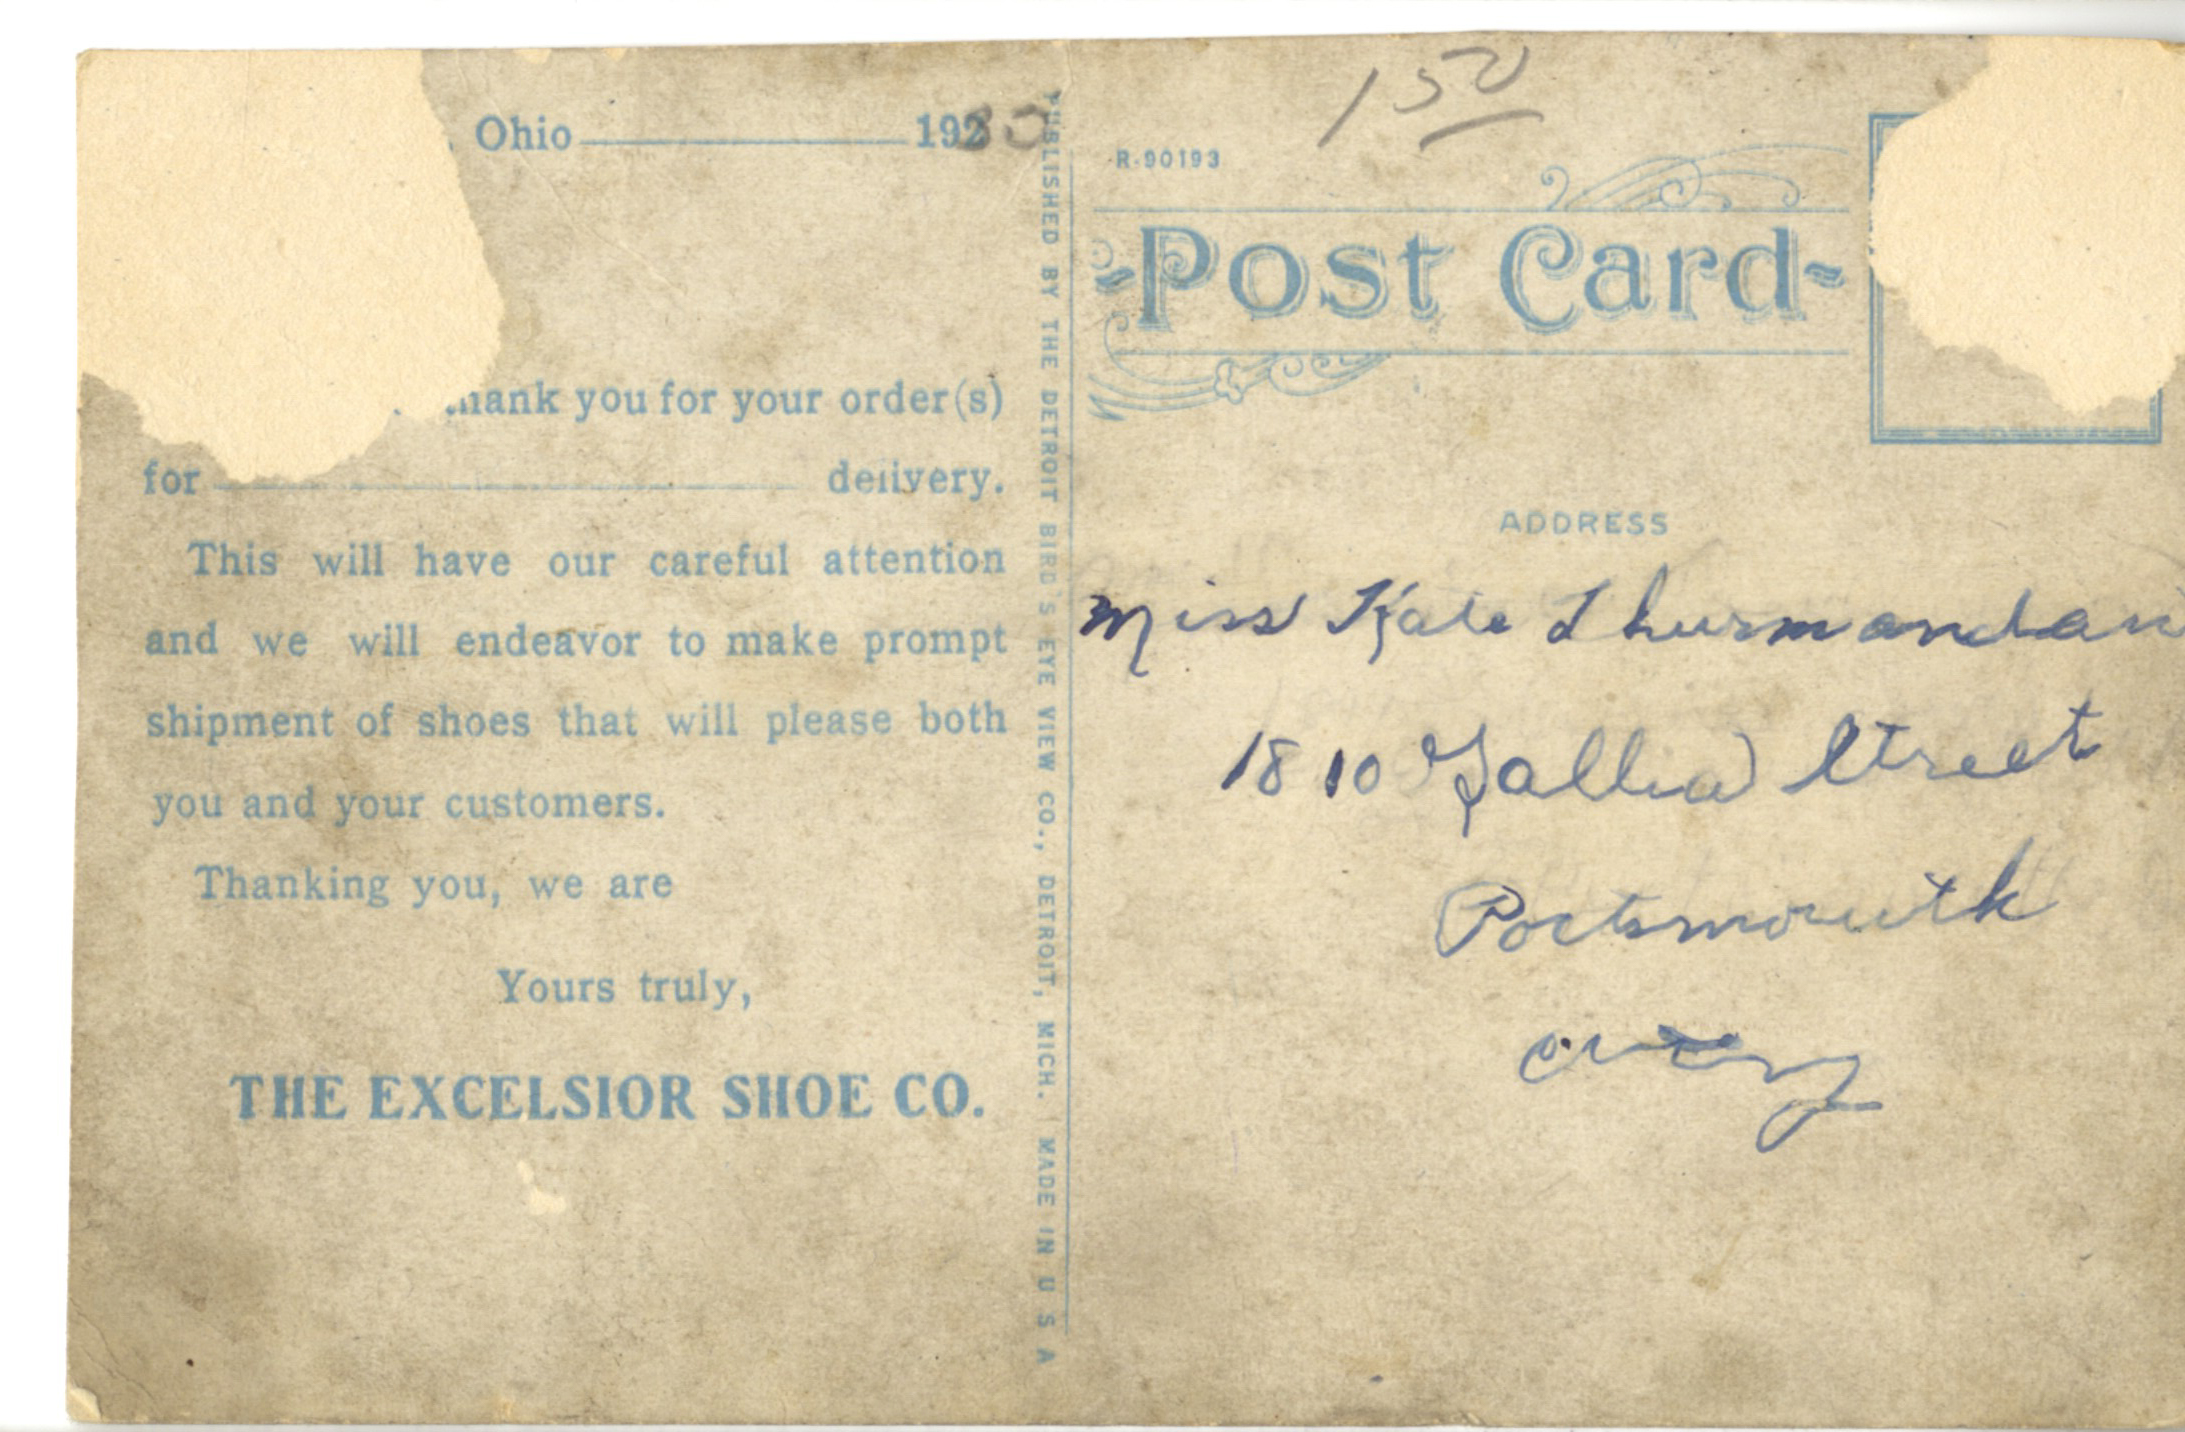 Ohio 192
thank you for your order(s)
for delivery.
This will have our careful attention
and we will endeavor to make prompt
shipment of shoes that will please both
you and your customers.
Thanking you, we are
Yours truly,
THE EXCELSIOR SHOE CO.
PUBLISHED BY THE DETROIT BIRD'S EYE VIEW CO., DETROIT, MICH. MADE IN U S A
150
R-90193
Post Card
ADDRESS
Miss Kate
1810 Gallia Street
Portsmouth